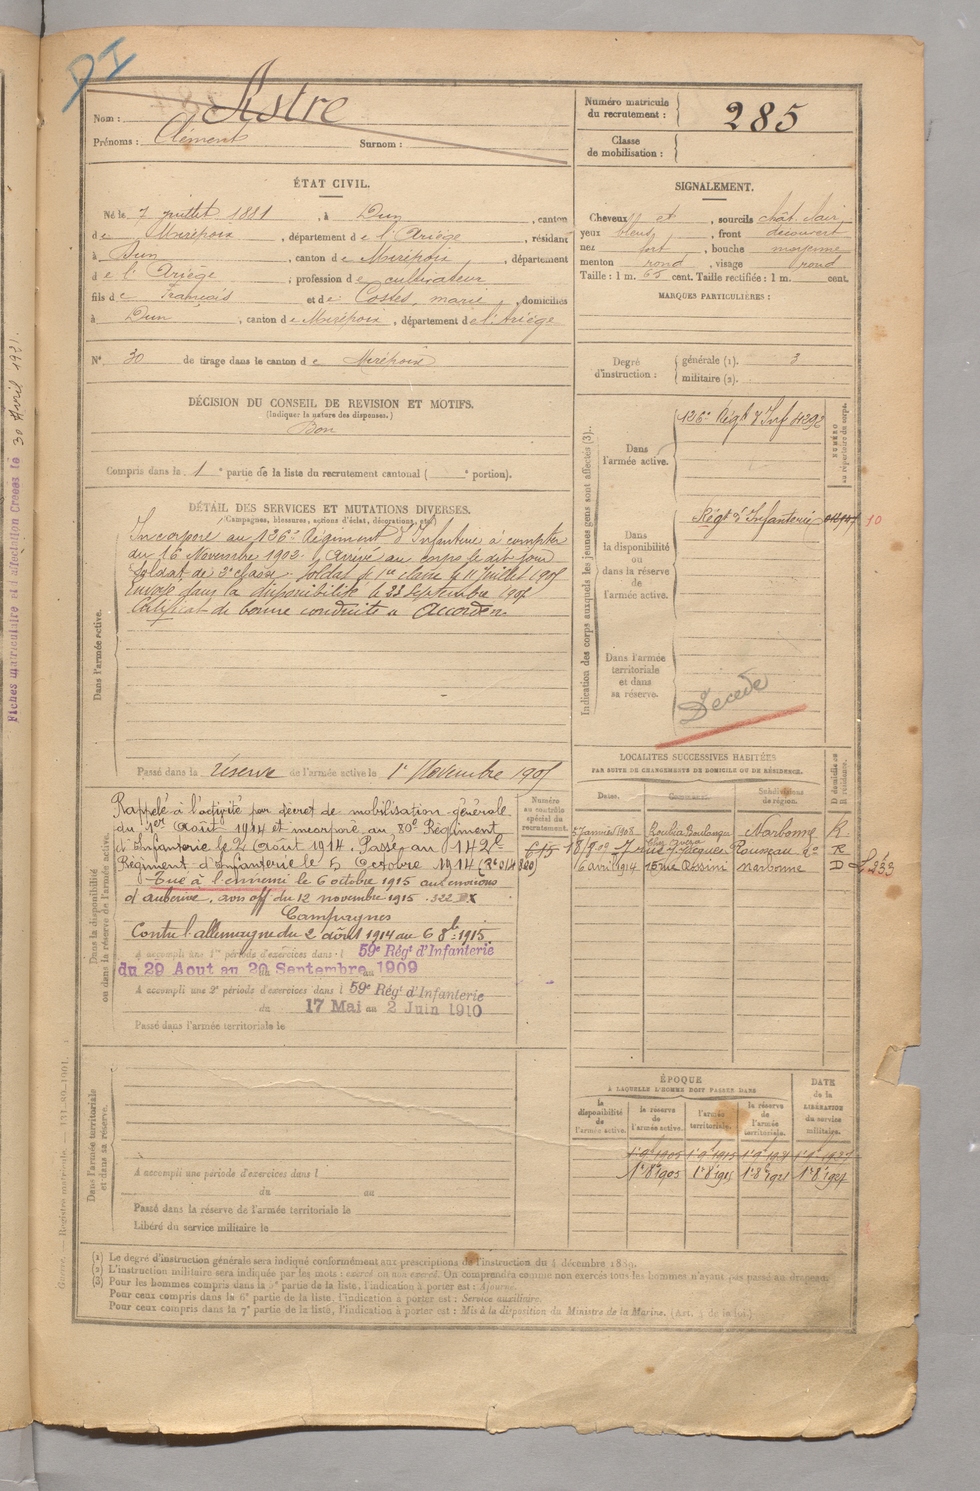 DI
Nom : Astre
Prénoms : Clément Surnom :
Numéro matricule
du recrutement : 285
Classe
de mobilisation :
ÉTAT CIVIL.
Né le 7 juillet 1881, à Dun, canton
de Mirepoix, département de l'Ariège, résidant
à Dun, canton de Mirepoix, département
de l'Ariège, profession de cultivateur
fils de François et de Costes, marie, domiciliés
à Dun, canton de Mirepoix, département de l'Ariège
N° 30 de tirage dans le canton de Mirepoix
SIGNALEMENT.
Cheveux et, sourcils chât. clair,
yeux bleus, front découvert
nez fort, bouche moyenne
menton rond, visage rond
Taille : 1 m. 65 cent. Taille rectifiée : 1 m. cent.
MARQUES PARTICULIÈRES :
Degré
d'instruction :
générale (1). 3
militaire (2).
DÉCISION DU CONSEIL DE REVISION ET MOTIFS.
(Indiquer la nature des dispenses.)
Bon
Compris dans la 1e partie de la liste du recrutement cantonal ( e portion).
DÉTAIL DES SERVICES ET MUTATIONS DIVERSES.
(Campagnes, blessures, actions d'éclat, décorations, etc.)
Dans l'armée active.
Incorporé au 126e Régiment d'Infanterie à compter
du 16 Novembre 1902. Arrivé au corps le dit jour
Soldat de 2e classe. Soldat de 1re classe le 11 Juillet 1905
Envoyé dans la disponibilité le 23 Septembre 1905
Certificat de bonne conduite accordé
Passé dans la réserve de l'armée active le 1er Novembre 1905
Indication des corps auxquels les jeunes gens sont affectés (3).
NUMÉRO
au répertoire du corps.
Dans
l'armée active.
126e Régt d'Inf 4292
Dans
la disponibilité
ou
dans la réserve
de
l'armée active.
Régt d'Infanterie
10
Dans l'armée
territoriale
et dans
sa réserve.
Décédé
LOCALITÉS SUCCESSIVES HABITÉES
PAR SUITE DE CHANGEMENTS DE DOMICILE OU DE RÉSIDENCE.
Dates. Communes. Subdivisions
de région.
D domicile ou
R résidence.
5 janvier 1908 Narbonne R.
18/9.09 7 rue J. Jacques Rousseau do R
6 avril 1914 15 rue Rossini Narbonne D
Numéro
au contrôle
spécial du
recrutement.
Dans la disponibilité
ou dans la réserve de l'armée active.
Rappelé à l'activité par décret de mobilisation générale
du 1er Août 1914 et incorporé au 80e Régiment
d'Infanterie le 2 Août 1914. Passé au 142e
Régiment d'Infanterie le 5 Octobre 1914
Tué à l'ennemi le 6 octobre 1915 aux environs
d'auberive, avis off du 12 novembre 1915
Campagnes
Contre l'allemagne du 2 août 1914 au 6 8bre 1915.
A accompli une 1re période d'exercices dans l 59e Régt d'Infanterie
du 29 Aout au 20 Septembre 1909
A accompli une 2e période d'exercices dans l 59e Régt d'Infanterie
du 17 Mai au 2 Juin 1910
Passé dans l'armée territoriale le
Dans l'armée territoriale
et dans sa réserve.
A accompli une période d'exercices dans l
du au
Passé dans la réserve de l'armée territoriale le
Libéré du service militaire le
ÉPOQUE
À LAQUELLE L'HOMME DOIT PASSER DANS
DATE
de la
LIBÉRATION
du service
militaire.
la
disponibilité
de
l'armée active.
la réserve
de
l'armée active.
l'armée
territoriale.
la réserve
de
l'armée
territoriale.
1er 9bre 1905 1er 9bre 1915 1er 9bre 1921 1er 9bre 1927
1er 8bre 1905 1er 8bre 1915 1er 8bre 1921 1er 8bre 1927
(1) Le degré d'instruction générale sera indiqué conformément aux prescriptions de l'instruction du 4 décembre 1889.
(2) L'instruction militaire sera indiquée par les mots : exercé ou non exercé. On comprendra comme non exercés tous les hommes n'ayant pas passé au drapeau.
(3) Pour les hommes compris dans la 5e partie de la liste, l'indication à porter est : Ajourné.
Pour ceux compris dans la 6e partie de la liste, l'indication à porter est : Service auxiliaire.
Pour ceux compris dans la 7e partie de la liste, l'indication à porter est : Mis à la disposition du Ministre de la Marine. (Art. 4 de la loi.)
Fiches matriculaire et d'affectation Créées le 30 Avril 1921.